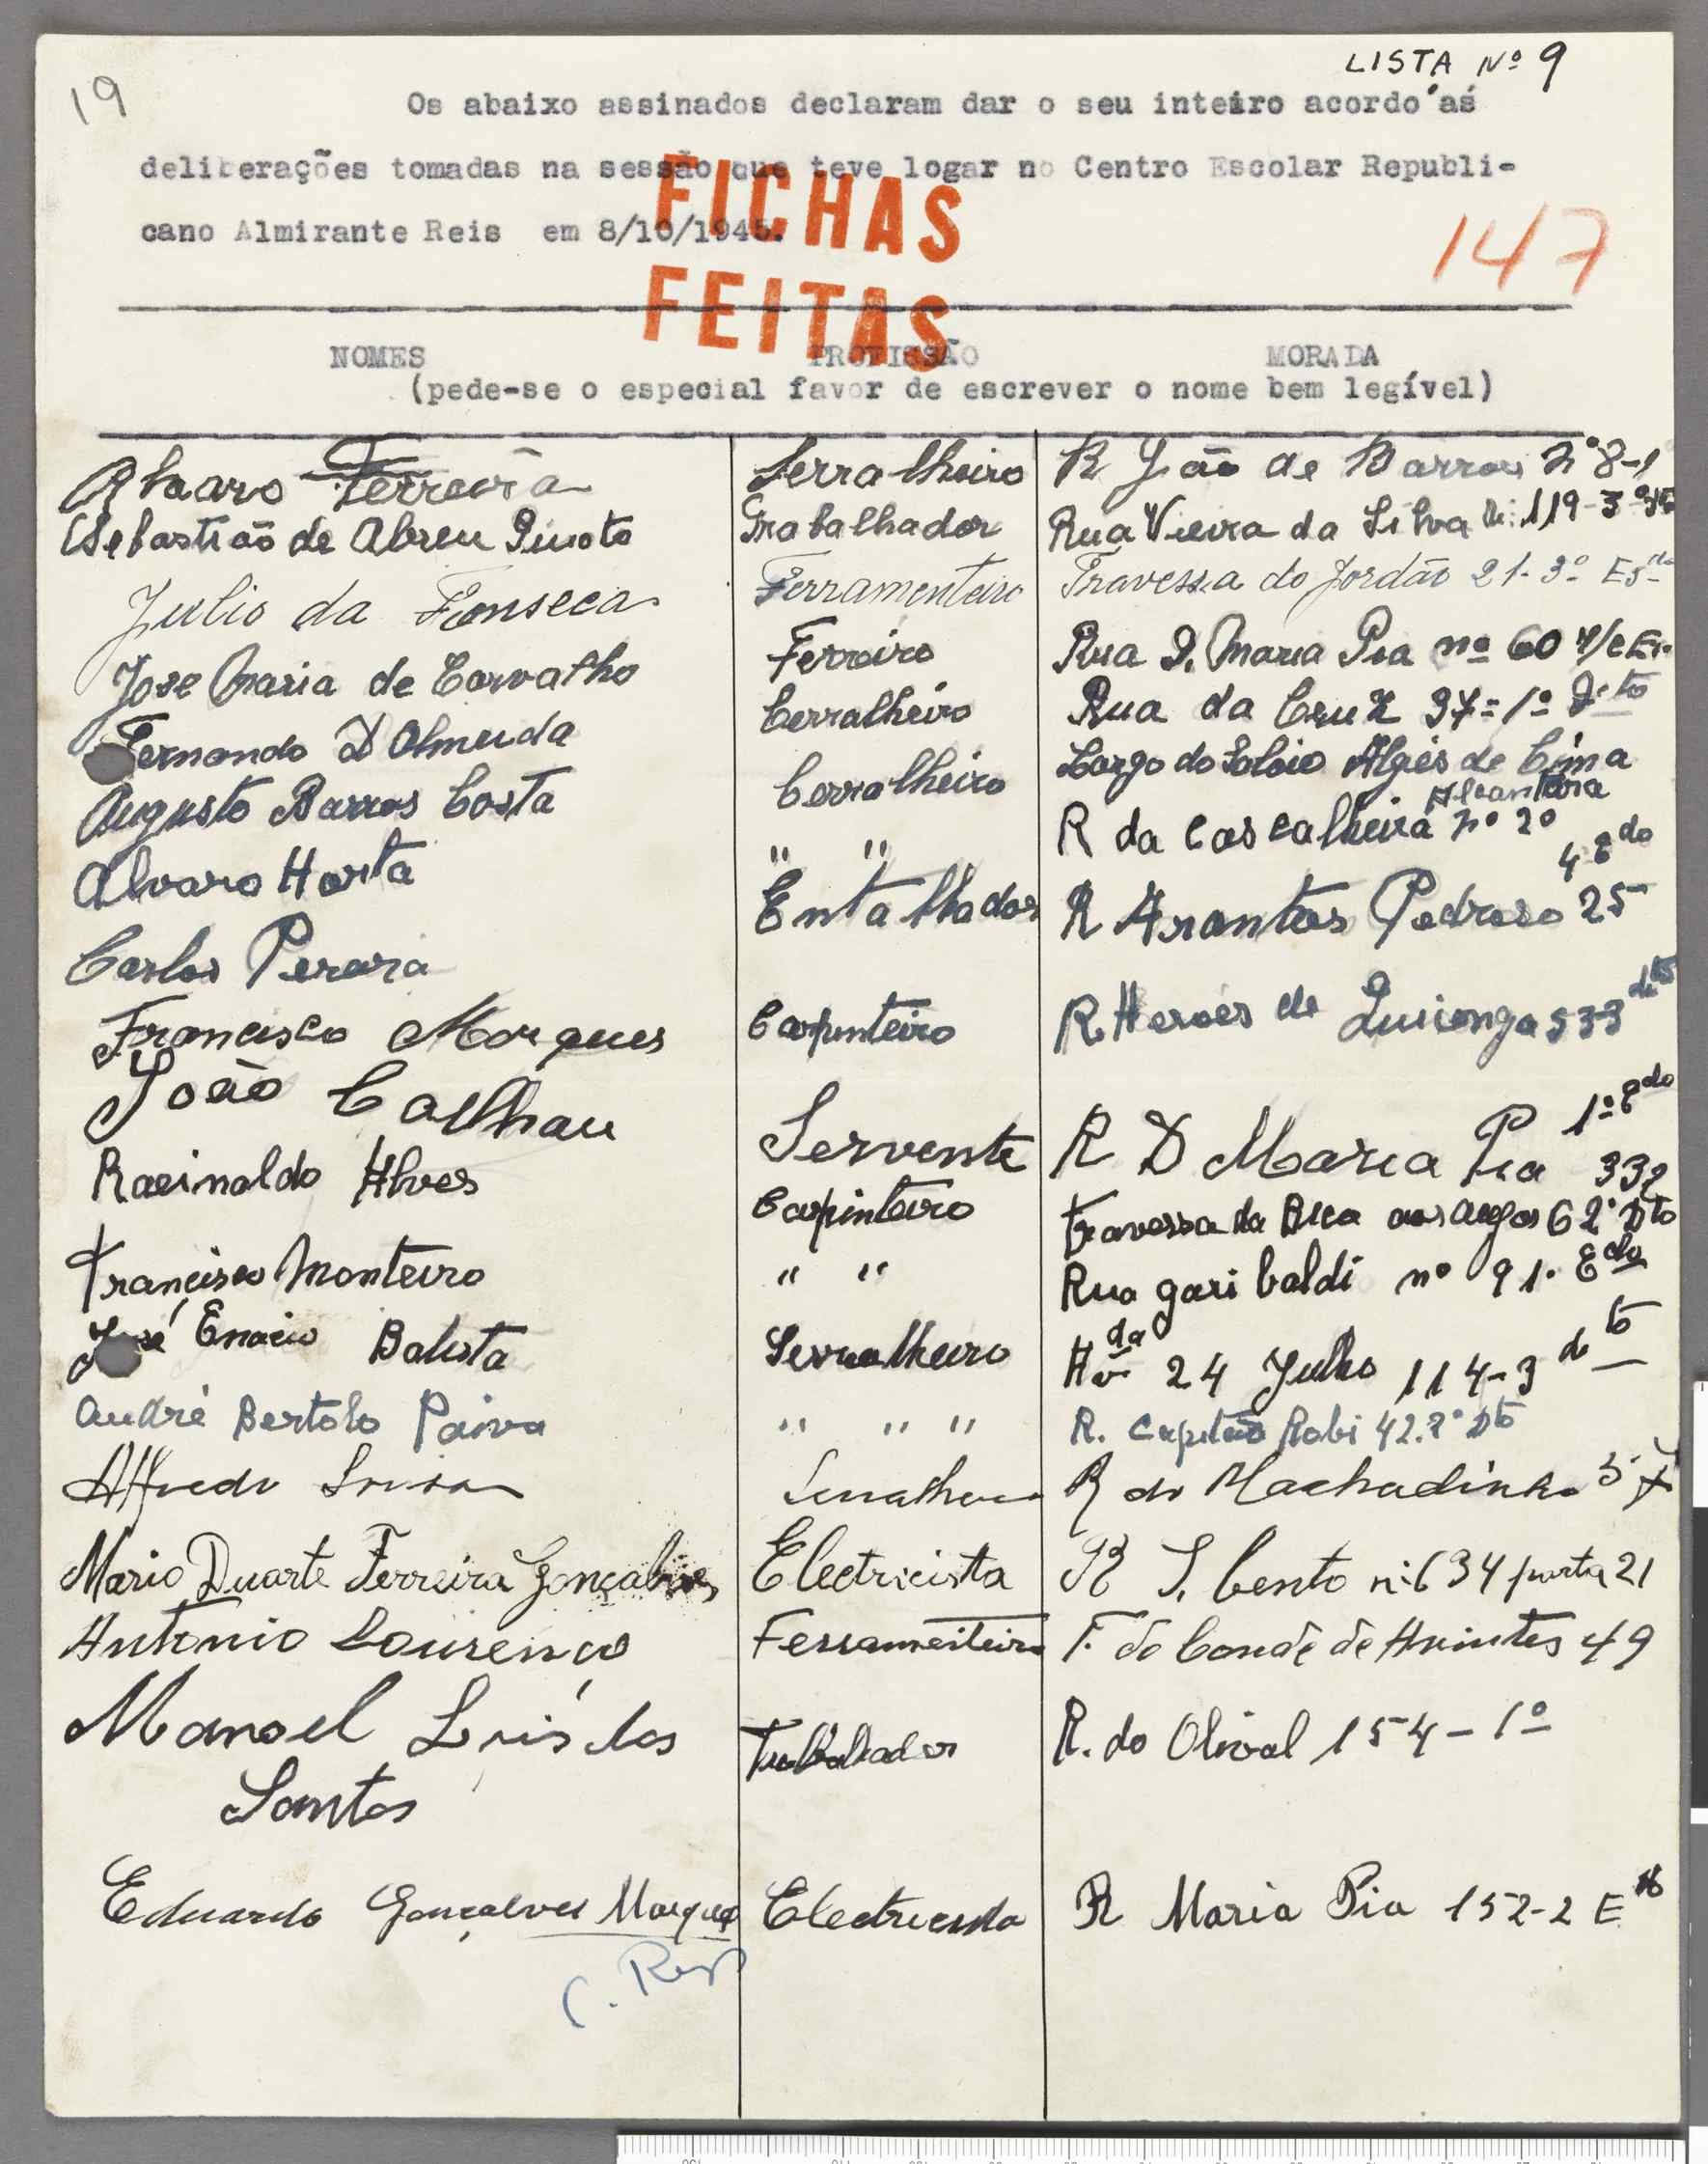 LISTA Nº 9
19
Os abaixo assinados declaram dar o seu inteiro acordo ás
deliberações tomadas na sessão que teve logar no Centro Escolar Republi-
cano Almirante Reis em 8/10/1945.
FICHAS
FEITAS
147
NOMES PROFISSÃO MORADA
(pede-se o especial favor de escrever o nome bem legível)
Alvaro Ferreira Serralheiro R João de Barros nº 8-1
Sebastião de Abreu Trabalhador Rua Vieira da Silva Nº 119-3º
Julio da Fonseca Ferramenteiro Travessa do Jordão 21-3º
Jose Maria de Carvalho Ferreiro Rua D. Maria Pia nº 60
Fernando D Almeida Cerralheiro Rua da Cruz 37=1º
Augusto Barros Costa Cerralheiro Largo do Algés de Cima
Alvaro Horta " " R da Cascalheira nº 2º Alcantara
Carlos Pereira Entalhador R Arantes Pedroso 25 4 Edo
Francisco Marques Carpinteiro R Heroes de Quionga 533
João Calhau Servente R D Maria Pia 332 1º Edo
Raeinaldo Alves Carpinteiro travessa da Bica 62º Dto
Francisco Monteiro " " Rua garibaldi nº 91. Edo
José Enacio Batista Serralheiro Avda 24 Julho 114-3 dto
André Bertolo Paiva " " " R. Capitão Robi 42.2º Dto
Alfredo Sousa R do Machadinho
Mario Duarte Ferreira Gonçalves Electricista R S. bento nº 634 porta 21
Antonio Lourenço Ferramenteiro T. do Conde de Avintes 49
Manoel Luis dos Trabalhador R. do Olival 154-1º
Santos
Eduardo Gonçalves Marques Electricista R Maria Pia 152-2